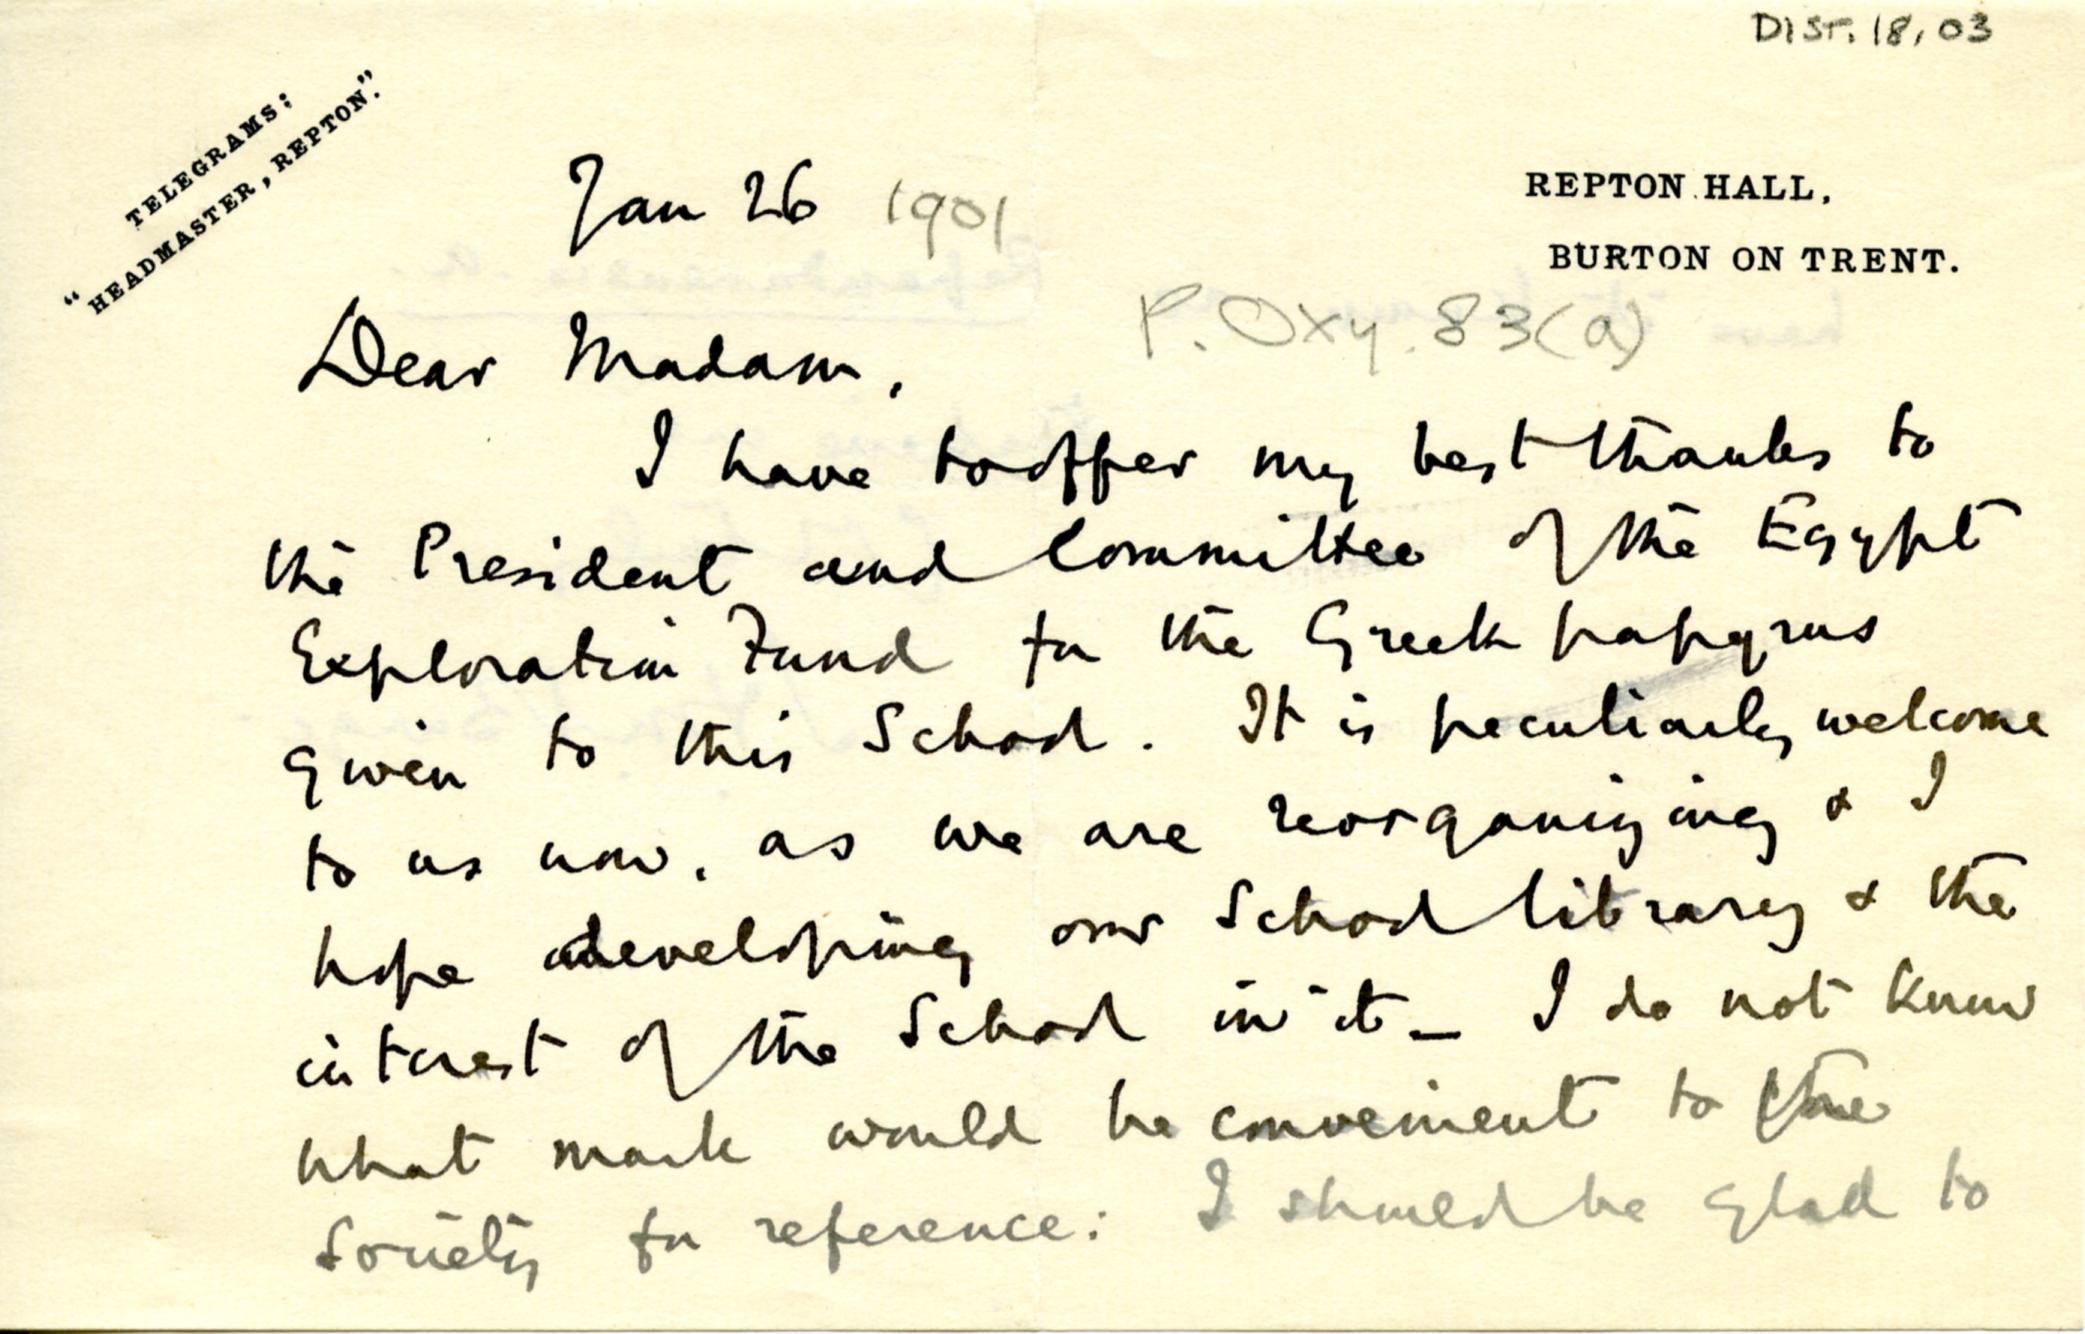 DIST. 18, 03
TELEGRAMS:
"HEADMASTER, REPTON."
REPTON HALL,
BURTON ON TRENT.
Jan 26 1901
P. Oxy. 83(a)
Dear Madam,
I have to offer my best thanks to
the President and Committee of the Egypt
Exploration Fund for the Greek papyrus
given to this School. It is peculiarly welcome
to us now, as we are reorganizing & I
hope developing our School library & the
interest of the School in it – I do not know
what mark would be convenient to the
Society for reference: I should be glad to